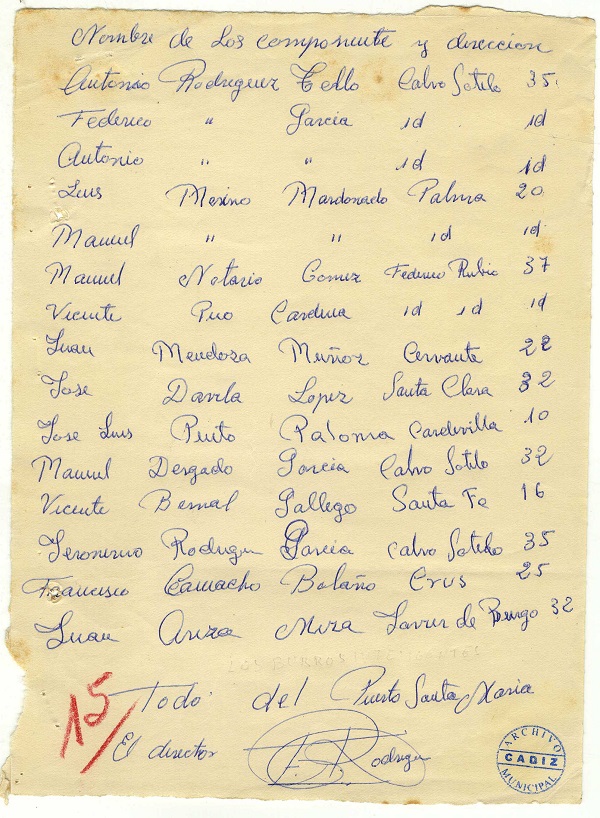 Nombre de los componente y direccion
Antonio Rodriguez Tello Calvo Sotelo 35.
Federico " Garcia id id
Antonio " " id id
Luis Merino Mardonado Palma 20
Manuel " " id id
Manuel Notario Gomez Federico Rubio 37
Vicente Puo Cardena id id id
Juan Mendoza Muñoz Cervante 22
Jose Davila Lopez Santa Clara 32
Jose Luis Puito Paloma Cardevilla 10
Manuel Desgado Garcia Calvo Sotelo 32
Vicente Bernal Gallego Santa Fe 16
Jeronimo Rodrigu Garcia Calvo Sotelo 35
Francisco Camacho Bolaño Crus 25
Juan Ariza Meza de Burgo 32
LOS BURROS
15/
Todo del Puerto Santa Maria
El director Rodrigu
ARCHIVO MUNICIPAL
CADIZ